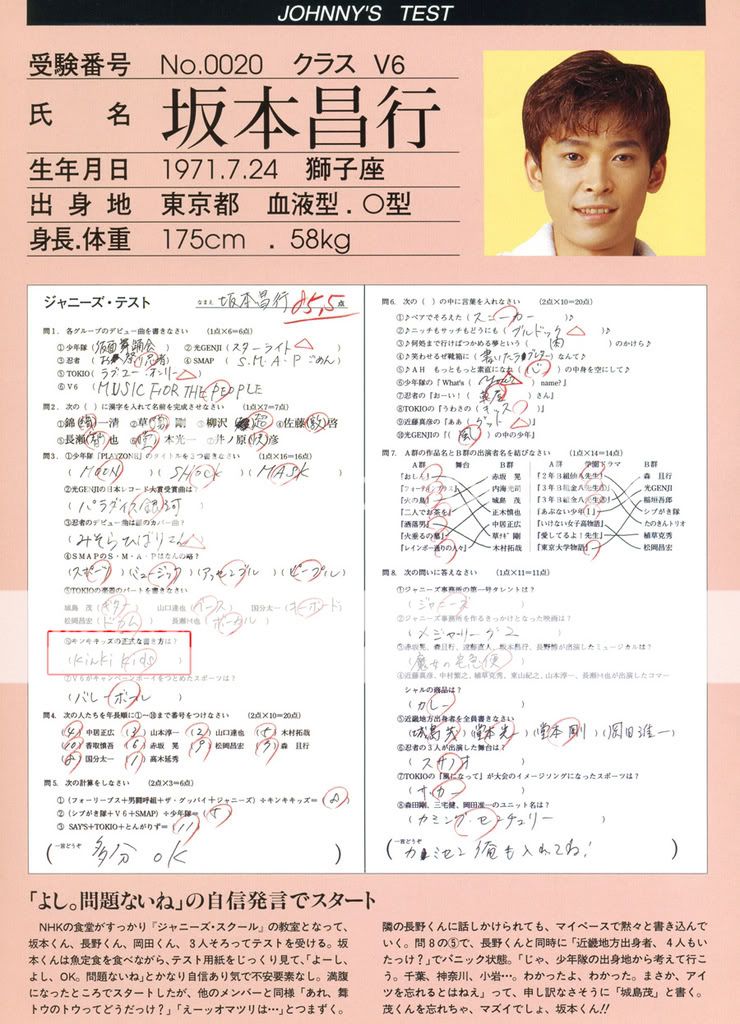 JOHNNY'S TEST
受験番号 No.0020 クラス V6
氏名 坂本昌行
生年月日 1971.7.24 獅子座
出身地 東京都 血液型.O型
身長.体重 175cm . 58kg
ジャニーズ・テスト なまえ 坂本昌行 85,5点
問1. 各グループのデビュー曲を書きなさい (1点×6=6点)
①少年隊(仮面舞踏会) ②光GENJI(スターライト)
④SMAP(S.M.A.Pごめん)
⑤TOKIO(ラブユーオンリー)
⑥V6(MUSIC FOR THE PEOPLE)
問2. 次の( )に漢字を入れて名前を完成させなさい (1点×7=7点)
問3. ①少年隊「PLAYZONE」のタイトルを3つ書きなさい (1点×16=16点)
(MOON) (SHOCK) (MASK)
②光GENJIの日本レコード大賞受賞曲は
(パラダイス銀河)
③忍者のデビュー曲は誰のカバー曲?
(みそらひばりさん)
④SMAPのS・M・A・Pはなんの略?
(スポーツ)(ミュージック)(アッセンブル)(ピープル)
⑤TOKIOの楽器のパートを書きなさい
城島 茂(ギター) 山口達也(ベース) 国分太一(キーボード)
松岡昌宏(ドラム) 長瀬智也(ボーカル)
⑥キンキキッズの正式な書き方は?
(kinki kids)
⑦V6がキャンペーンボーイをつとめたスポーツは?
(バレーボール)
問4. 次の人たちを年長順に①〜⑩まで番号をつけなさい (2点×10=20点)
(4)中居正広 (3)山本淳一 (2)山口達也 (5)木村拓哉
(10)香取慎吾 (6)赤坂 晃 (9)松岡昌宏 (7)森 且行
(8)国分太一 (1)高木延秀
問5. 次の計算をしなさい (2点×3=6点)
①(フォーリーブス+男闘呼組+ザ・グッバイ+ジャニーズ)÷キンキキッズ=(8)
②(シブがき隊+V6+SMAP)÷少年隊=(5)
③SAYS+TOKIO+とんがりず=(11)
一言どうぞ
(多分 OK)
問6. 次の( )の中に言葉を入れなさい (2点×10=20点)
①♪ペアでそろえた(スニーカー)♪
②♪ニッチもサッチもどうにも(ブルドック)♪
⑤♪AH もっともっと素直になれ(心)の中身を空にして♪
⑥少年隊の「What's( )name?」
⑦忍者の「おーい!(車屋)さん」
⑧TOKIOの「うわさの(キッス)」
⑨近藤真彦の「ああ(グッド)」
⑩光GENJIの「(風)の中の少年」
問7. A群の作品名とB群の出演者名を結びなさい (1点×14=14点)
A群 舞台 B群 A群 学園ドラマ B群
『おしん』 赤坂 晃 『2年B組仙八先生』 森 且行
『フォーティンブラス』 内海光司 『3年B組金八先生』 光GENJI
『火の鳥』 城島 茂 稲垣吾郎
『二人でお茶を』 正木慎也 『あぶない少年Ⅱ』 シブがき隊
『洒落男』 中居正広 『いけない女子高物語』 たのきんトリオ
『火垂るの墓』 草彅 剛 『愛してるよ!先生』 植草克秀
『レインボー通りの人々』 木村拓哉 『東京大学物語』 松岡昌宏
問8. 次の問いに答えなさい (1点×11=11点)
①ジャニーズ事務所の第一号タレントは?
(ジャニーズ)
②ジャニーズ事務所を作るきっかけとなった映画は?
(メジャーリーグ2)
③赤坂晃、森且行、遠藤直人、坂本昌行、長野博が出演したミュージカルは?
(魔女の宅急便)
④近藤真彦、中村繁之、植草克秀、東山紀之、山本淳一、長瀬智也が出演したコマーシャルの商品は?
(カレー)
⑤近畿地方出身者を全員書きなさい
(城島茂)(堂本光一)(堂本剛)(岡田准一)
⑥忍者の3人が出演した舞台は?
(スサノオ)
⑦TOKIOの『風になって』が大会のイメージソングになったスポーツは?
(サッカー)
⑧森田剛、三宅健、岡田准一のユニット名は?
(カミング・センチュリー)
一言どうぞ
(カミセン 俺も入れてね!)
「よし。問題ないね」の自信発言でスタート
NHKの食堂がすっかり『ジャニーズ・スクール』の教室となって、
坂本くん、長野くん、岡田くん、3人そろってテストを受ける。坂
本くんは魚定食を食べながら、テスト用紙をじっくり見て、「よーし、
よし、OK。問題ないね」とかなり自信あり気で不安要素なし。満腹
になったところでスタートしたが、他のメンバーと同様「あれ、舞
トウのトウってどうだっけ?」「えーッオマツリは…」とつまずく。
隣の長野くんに話しかけられても、マイペースで黙々と書き込んで
いく。問8の⑤で、長野くんと同時に「近畿地方出身者、4人もい
たっけ?」でパニック状態。「じゃ、少年隊の出身地から考えて行こ
う。千葉、神奈川、小岩…。わかったよ、わかった。まさか、アイ
ツを忘れるとはねえ」って、申し訳なさそうに「城島茂」と書く。
茂くんを忘れちゃ、マズイでしょ、坂本くん!!